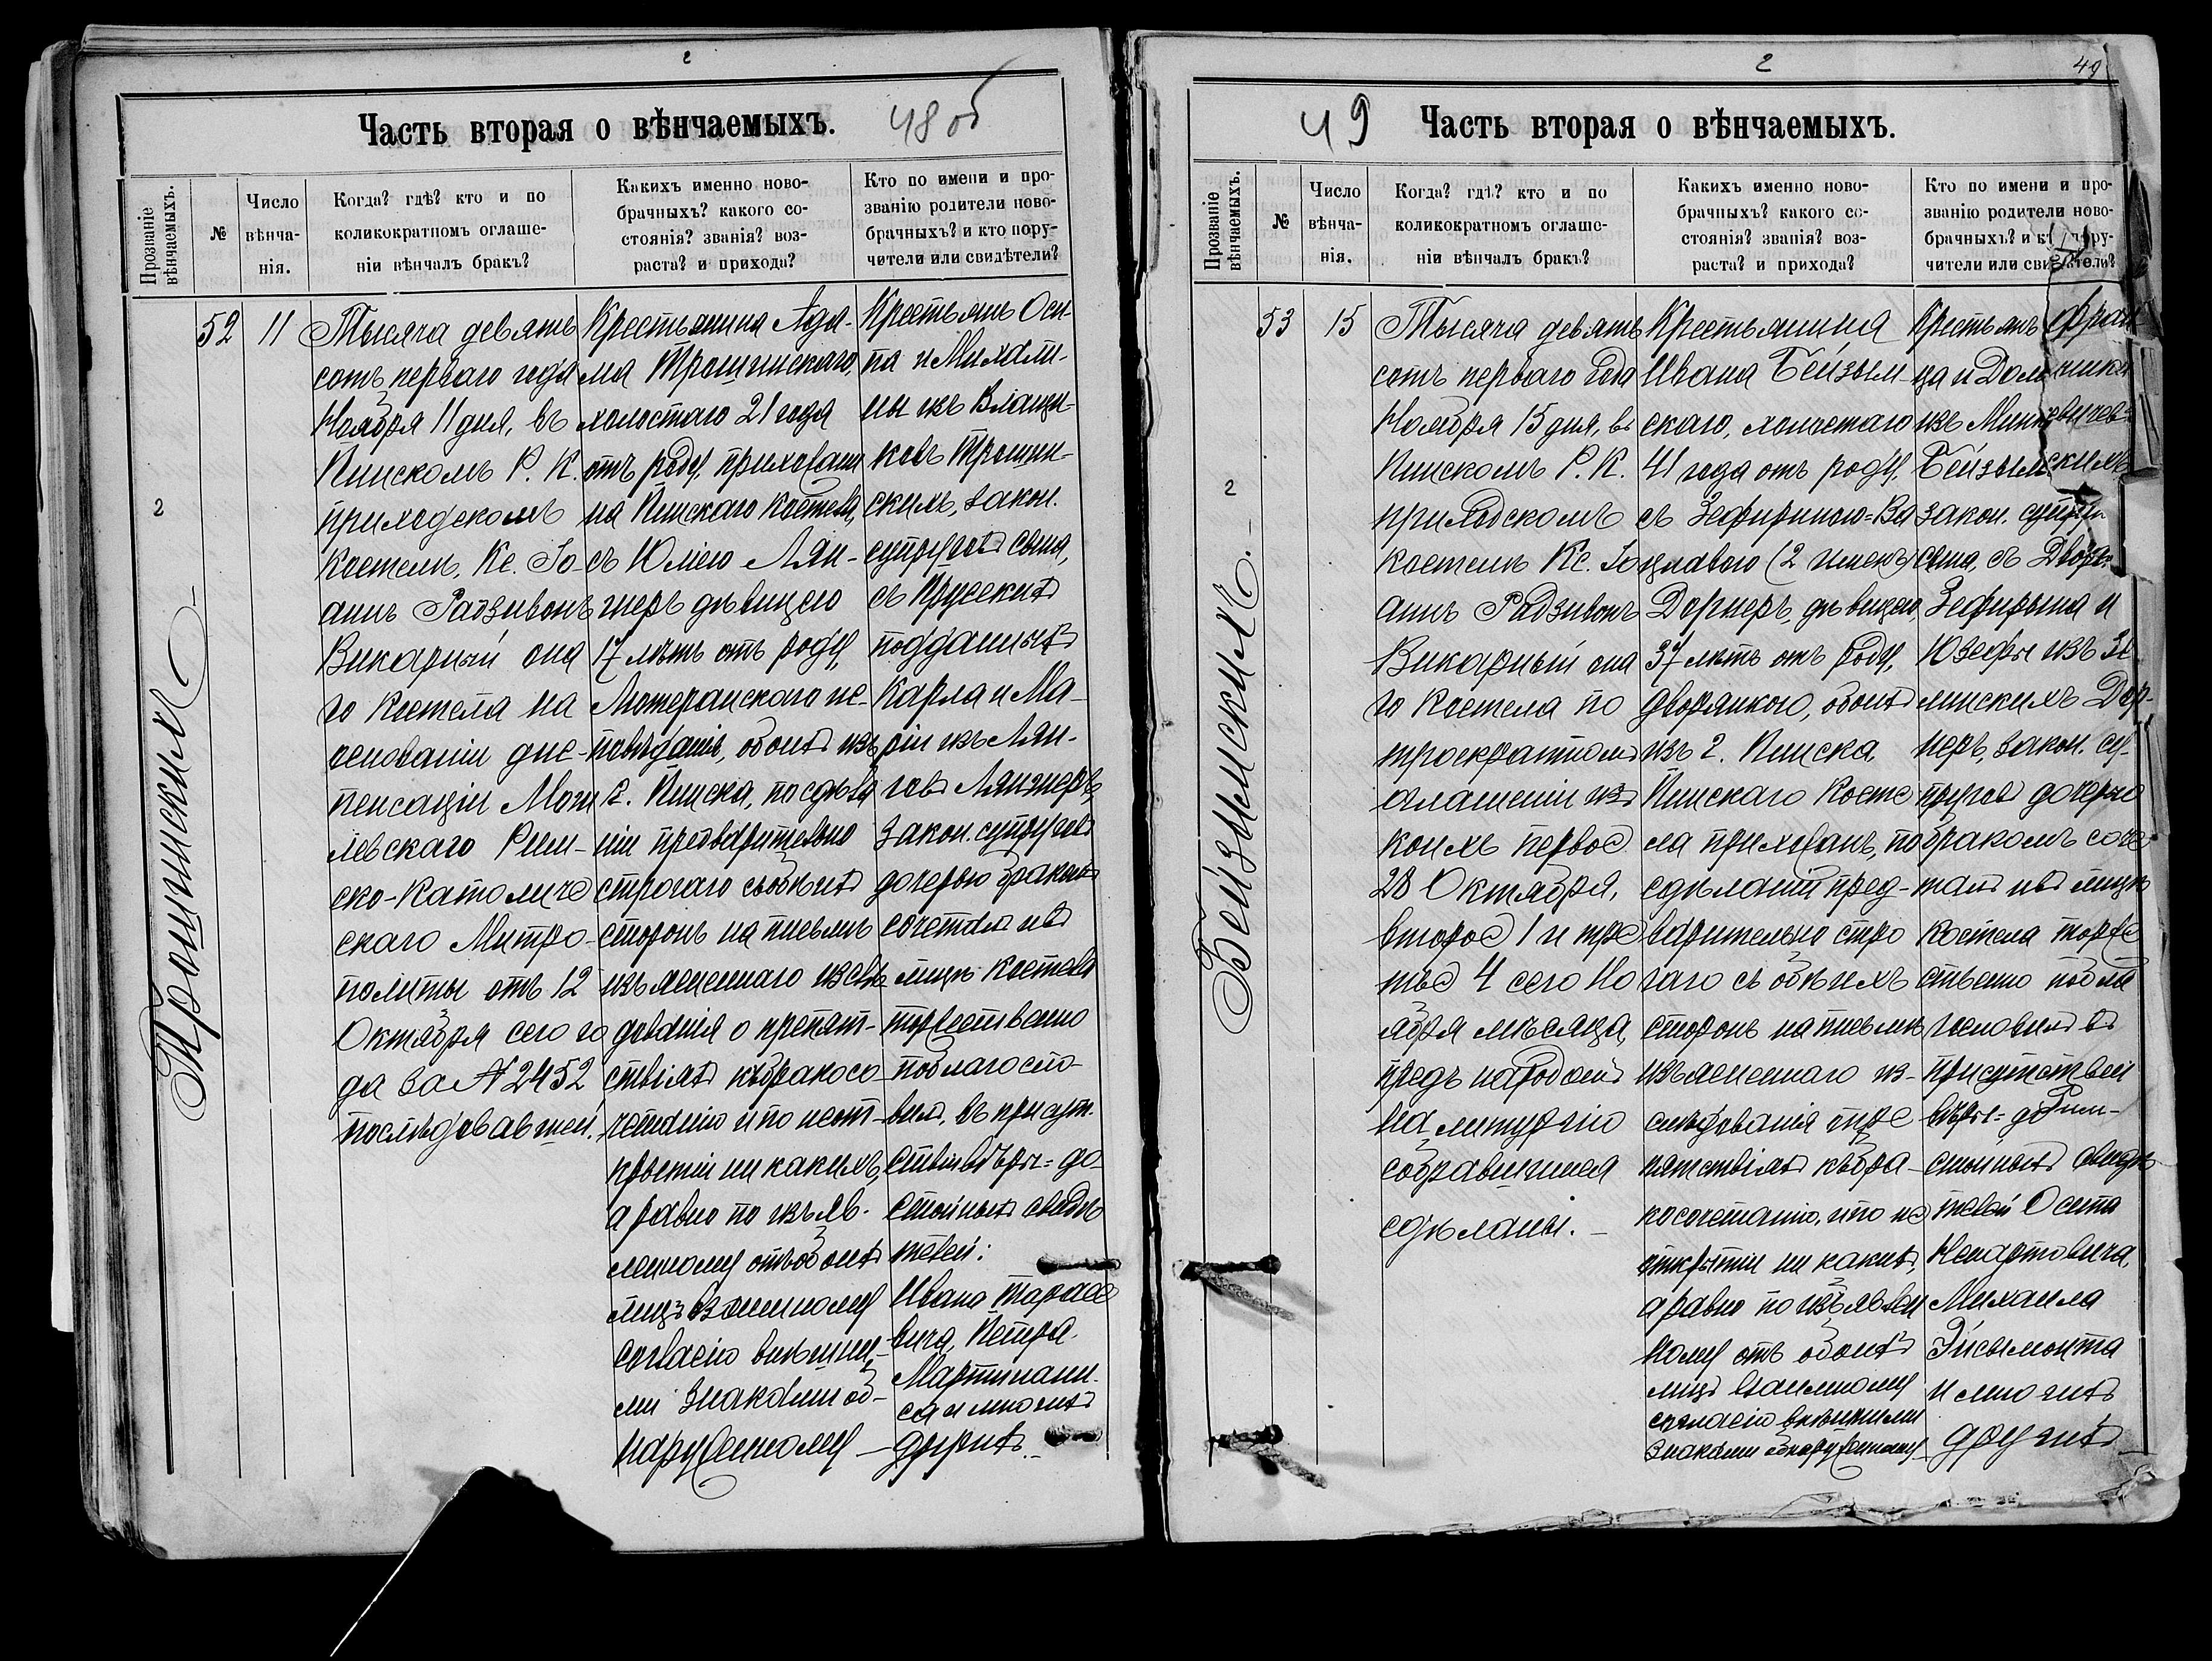 2
Часть вторая о вѣнчаемыхъ.
48 об
Прозваніе
вѣнчаемыхъ.
№
Число
вѣнча-
нія.
Когда? гдѣ? кто и по
коликократномъ оглаше-
ніи вѣнчалъ бракъ?
Какихъ именно ново-
брачныхъ? какого со-
стоянія? званія? воз-
раста? и прихода?
Кто по имени и про-
званію родители ново-
брачныхъ? и кто пору-
чители или свидѣтели?
2
Трошинскихъ
52
11
Тысяча девять
сотъ перваго года
Ноября 11 дня, въ
Пинскомъ Р. К.
приходскомъ
костелѣ, Кс. Іо-
аннъ Радзивонъ
Викарный она
го Костела на
основаніи дис-
пенсаціи Моги
левскаго Рим-
ско-Католиче
скаго Митро-
политы отъ 12
Октября сего го
да за № 2452
послѣдовавшей.
Крестьянина Ада-
ма Трошинскаго,
холостаго 21 года
отъ роду, прихожани
на Пинскаго костела,
съ Юліею Лян-
геръ дѣвицею
17 лѣтъ отъ роду,
Лютеранскаго ис-
повѣданія, обоихъ изъ
г. Пинска, по сдѣла
ніи предварительно
строгаго съ обѣихъ
сторонъ на письмѣ
изъясненнаго изслѣ
дованія о препят-
ствіяхъ къ бракосо-
четанію и по неот-
крытіи никакихъ,
а равно по изъяв-
ленному отъ обоихъ
лицъ взаимному
согласію внѣшни-
ми знаками об-
наруженному –
Крестьянъ Оси-
па и Михали-
ны изъ Влащи-
ковъ Трошин-
скихъ, закон.
супруговъ сына,
съ Прусскихъ
подданныхъ
Карла и Ма-
ріи изъ Лян-
говъ Лянгнеръ,
закон. супруговъ
дочерью бракомъ
сочеталъ и въ
лицѣ костела
торжественно
поблагосло-
вилъ, въ присут.
ствіи вѣры=до-
стойныхъ свидѣ
телей:
Ивана Тарасе
вича, Петра
Мартинани-
са и многихъ
другихъ. –
2
49
49
Часть вторая о вѣнчаемыхъ.
Прозваніе
вѣнчаемыхъ.
№
Число
вѣнча-
нія.
Когда? гдѣ? кто и по
коликократномъ оглаше-
ніи вѣнчалъ бракъ?
Какихъ именно ново-
брачныхъ? какого со-
стоянія? званія? воз-
раста? и прихода?
Кто по имени и про-
званію родители ново-
брачныхъ? и кто пору-
чители или свидѣтели?
2
Бейзымскихъ. –
53
15
Тысяча девять
сотъ перваго года
Ноября 15 дня, въ
Пинскомъ Р. К.
приходскомъ
костелѣ Кс. Іо
аннъ Радзивонъ
Викарный она
го Костела по
троекратномъ
оглашеніи изъ
коихъ первое
28 Октября,
второе 1 и тре
тье 4 сего Но
ября мѣсяца,
предъ народомъ
на литургію
собравшимся
сдѣланы. –
Крестьянина
Ивана Бейзым-
скаго, холостаго
41 года отъ роду,
съ Зефириною=Ва
цлавою (2 именъ)
Дорнеръ, дѣвицею,
37 лѣтъ отъ роду,
дворянкою, обоихъ
изъ г. Пинска,
Пинскаго косте
ла прихожанъ, по
сдѣланіи пред-
варительно стро
гаго съ обѣихъ
сторонъ на письмѣ
изъясненнаго из-
слѣдованія о пре
пятствіяхъ къ бра-
косочетанію, и по не
открытіи никакихъ,
а равно по изъявлен
ному отъ обоихъ
лицъ взаимному
согласію внѣшними
знаками обнаруженному –
Крестьянъ Фран
ца и Доминики
изъ Минкевичевъ
Бейзымскихъ
закон. супру
сына, съ Дворян
Зефирына и
Юзефы изъ
линскихъ Дор-
неръ, закон. су-
пруговъ дочерью
бракомъ соче
талъ и въ лицѣ
костела торже
ственно побла
гословилъ въ
присутствіи
вѣры=до
стойныхъ свидѣ
телей Осипа
Ненартовича,
Михаила
Эйсымонта
и многихъ
другихъ